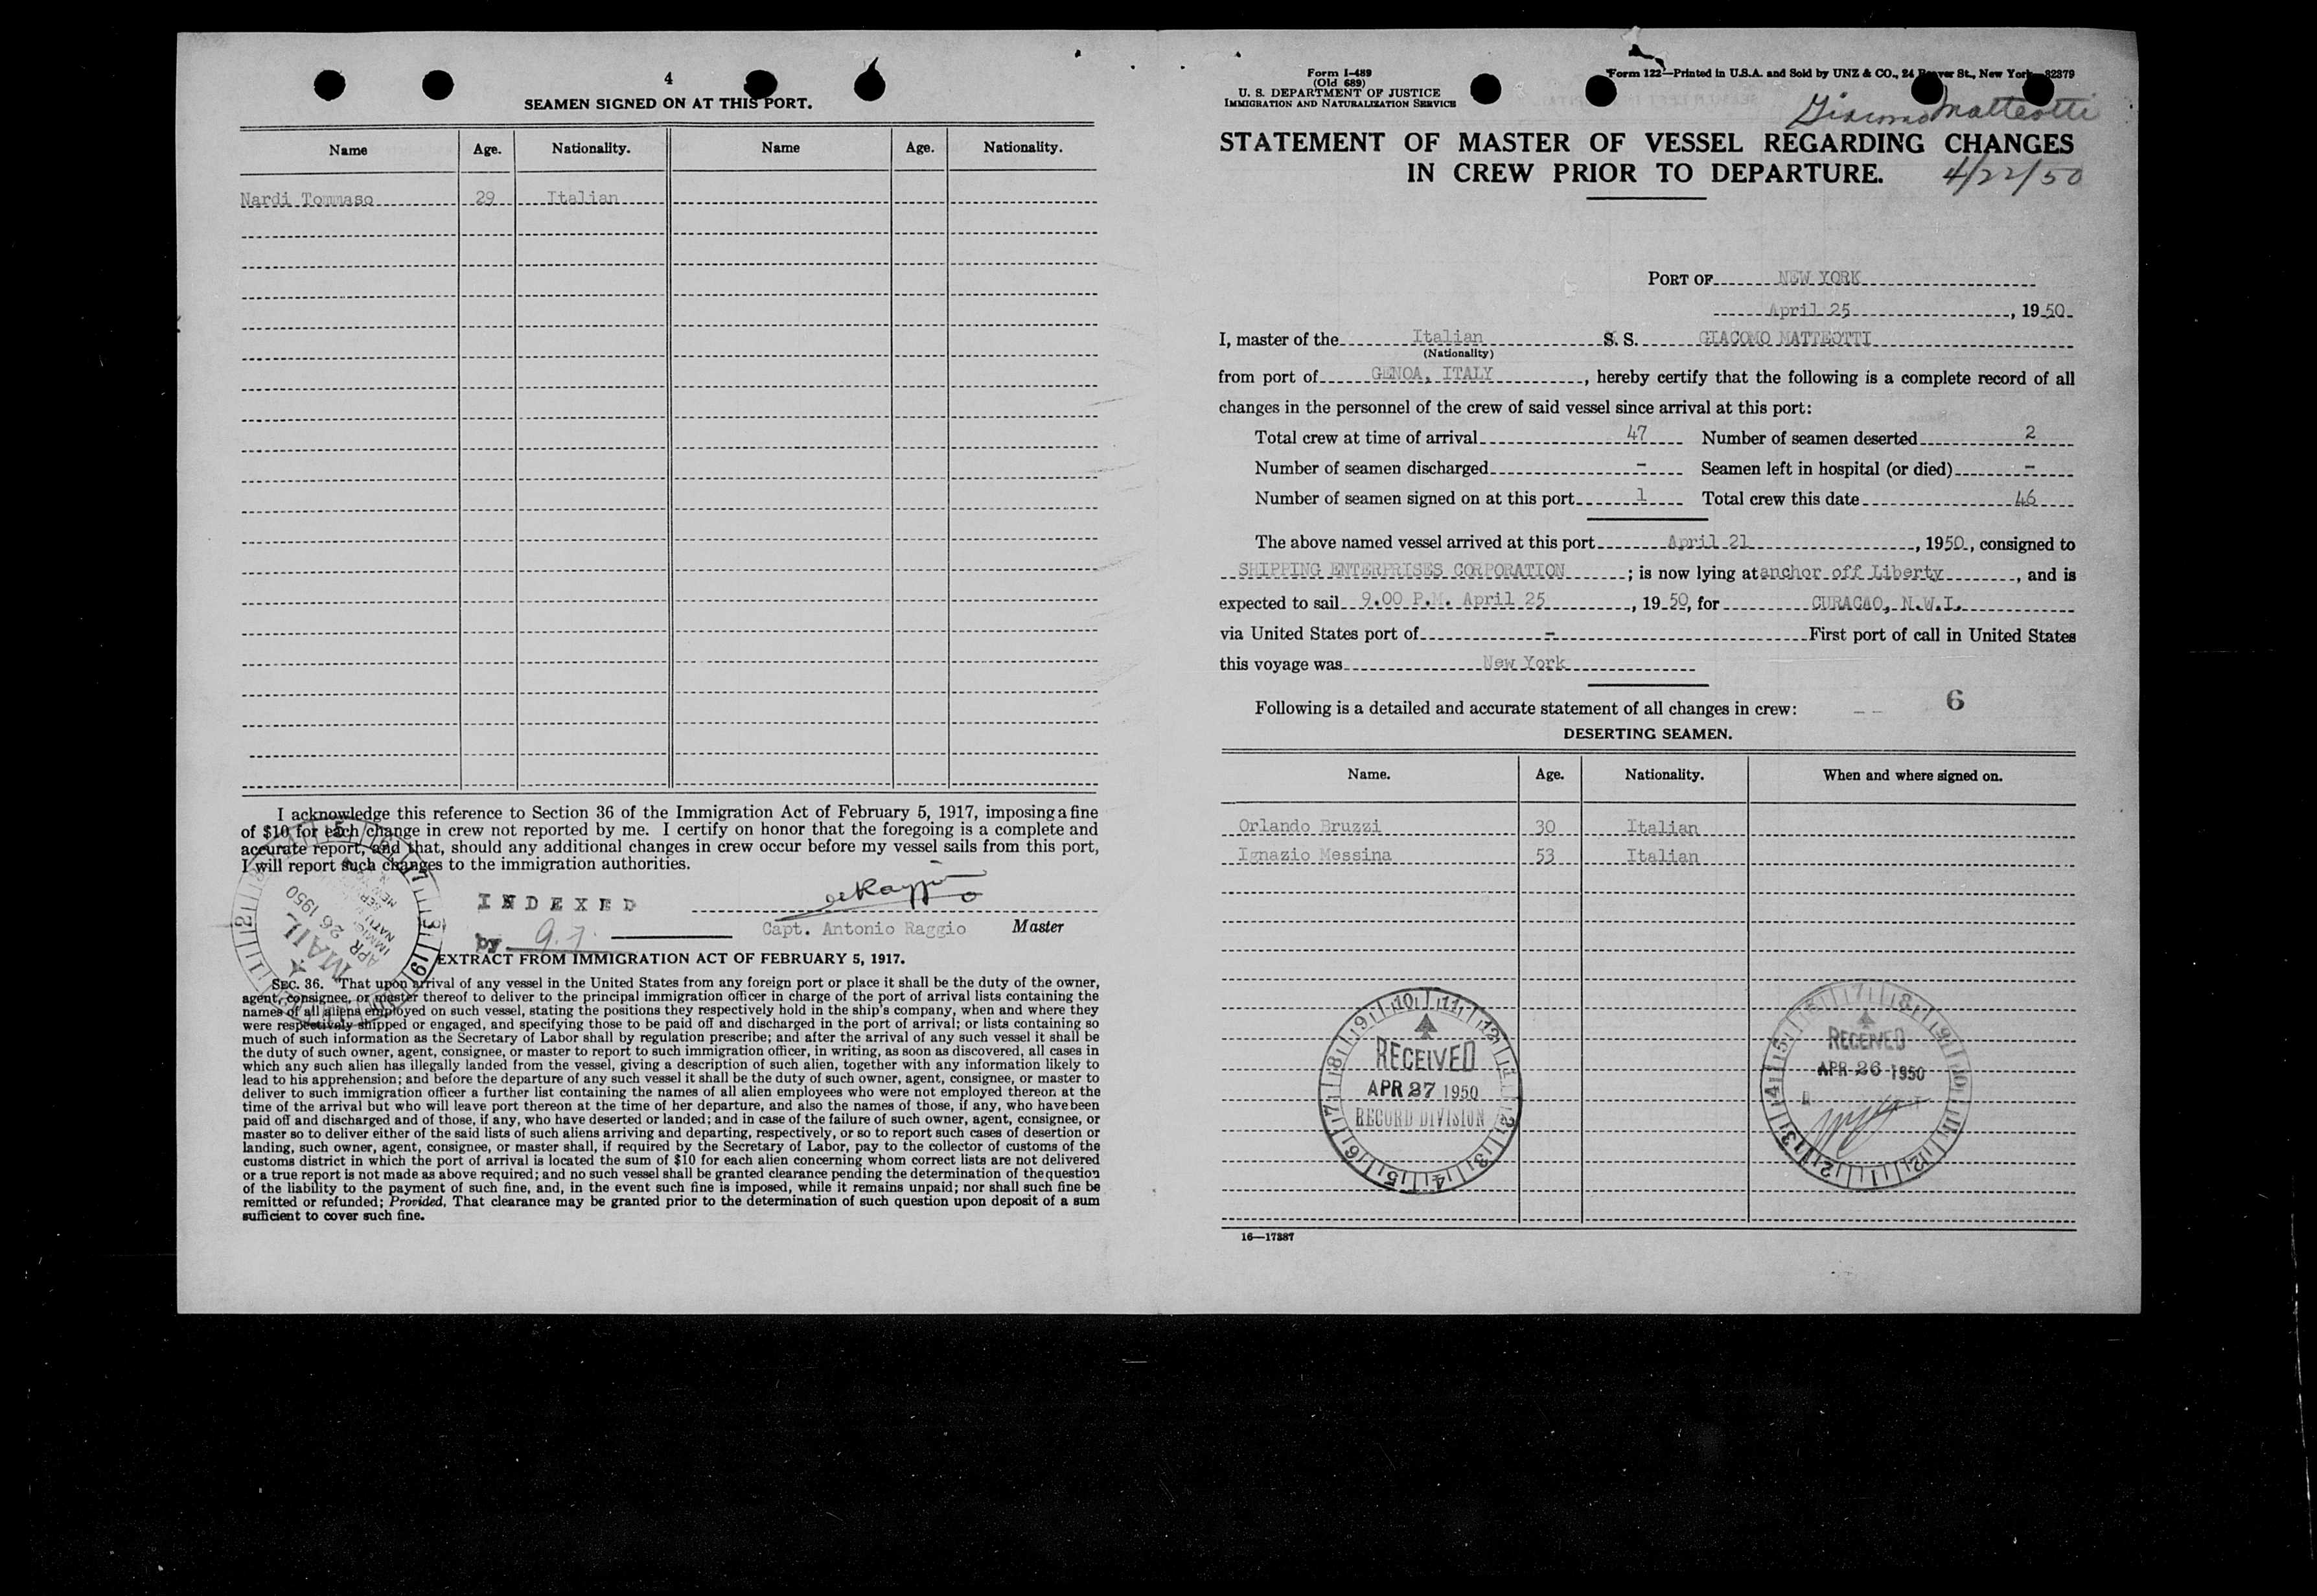 4
SEAMEN SIGNED ON AT THIS PORT.
Name Age. Nationality. Name Age. Nationality.
Nardi Tommaso 29 Italian
I acknowledge this reference to Section 36 of the Immigration Act of February 5, 1917, imposing a fine
of $10 for each change in crew not reported by me. I certify on honor that the foregoing is a complete and
accurate report, and that, should any additional changes in crew occur before my vessel sails from this port,
I will report such changes to the immigration authorities.
MAIL
APR 26 1950
INDEXED
by
Capt. Antonio Raggio Master
EXTRACT FROM IMMIGRATION ACT OF FEBRUARY 5, 1917.
SEC. 36. "That upon arrival of any vessel in the United States from any foreign port or place it shall be the duty of the owner,
agent, consignee, or master thereof to deliver to the principal immigration officer in charge of the port of arrival lists containing the
names of all aliens employed on such vessel, stating the positions they respectively hold in the ship's company, when and where they
were respectively shipped or engaged, and specifying those to be paid off and discharged in the port of arrival; or lists containing so
much of such information as the Secretary of Labor shall by regulation prescribe; and after the arrival of any such vessel it shall be
the duty of such owner, agent, consignee, or master to report to such immigration officer, in writing, as soon as discovered, all cases in
which any such alien has illegally landed from the vessel, giving a description of such alien, together with any information likely to
lead to his apprehension; and before the departure of any such vessel it shall be the duty of such owner, agent, consignee, or master to
deliver to such immigration officer a further list containing the names of all alien employees who were not employed thereon at the
time of the arrival but who will leave port thereon at the time of her departure, and also the names of those, if any, who have been
paid off and discharged and of those, if any, who have deserted or landed; and in case of the failure of such owner, agent, consignee, or
master so to deliver either of the said lists of such aliens arriving and departing, respectively, or so to report such cases of desertion or
landing, such owner, agent, consignee, or master shall, if required by the Secretary of Labor, pay to the collector of customs of the
customs district in which the port of arrival is located the sum of $10 for each alien concerning whom correct lists are not delivered
or a true report is not made as above required; and no such vessel shall be granted clearance pending the determination of the question
of the liability to the payment of such fine, and, in the event such fine is imposed, while it remains unpaid; nor shall such fine be
remitted or refunded; Provided, That clearance may be granted prior to the determination of such question upon deposit of a sum
sufficient to cover such fine.
Form I-489
(Old 689)
U. S. DEPARTMENT OF JUSTICE
IMMIGRATION AND NATURALIZATION SERVICE
Form 122—Printed in U.S.A. and Sold by UNZ & CO., 24 Beaver St., New York—32379
Giacomo Matteotti
STATEMENT OF MASTER OF VESSEL REGARDING CHANGES
IN CREW PRIOR TO DEPARTURE.
4/22/50
PORT OF NEW YORK
April 25, 1950
I, master of the Italian S. S. GIACOMO MATTEOTTI
(Nationality)
from port of GENOA, ITALY, hereby certify that the following is a complete record of all
changes in the personnel of the crew of said vessel since arrival at this port:
Total crew at time of arrival 47 Number of seamen deserted 2
Number of seamen discharged - Seamen left in hospital (or died) -
Number of seamen signed on at this port 1 Total crew this date 46
The above named vessel arrived at this port April 21, 1950, consigned to
SHIPPING ENTERPRISES CORPORATION; is now lying at anchor off Liberty, and is
expected to sail 9.00 P.M. April 25, 1950, for CURACAO, N.W.I.
via United States port of - First port of call in United States
this voyage was New York
Following is a detailed and accurate statement of all changes in crew:
6
DESERTING SEAMEN.
Name. Age. Nationality. When and where signed on.
Orlando Bruzzi 30 Italian
Ignazio Messina 53 Italian
RECEIVED
APR 27 1950
RECORD DIVISION
RECEIVED
APR 26 1950
16—17387